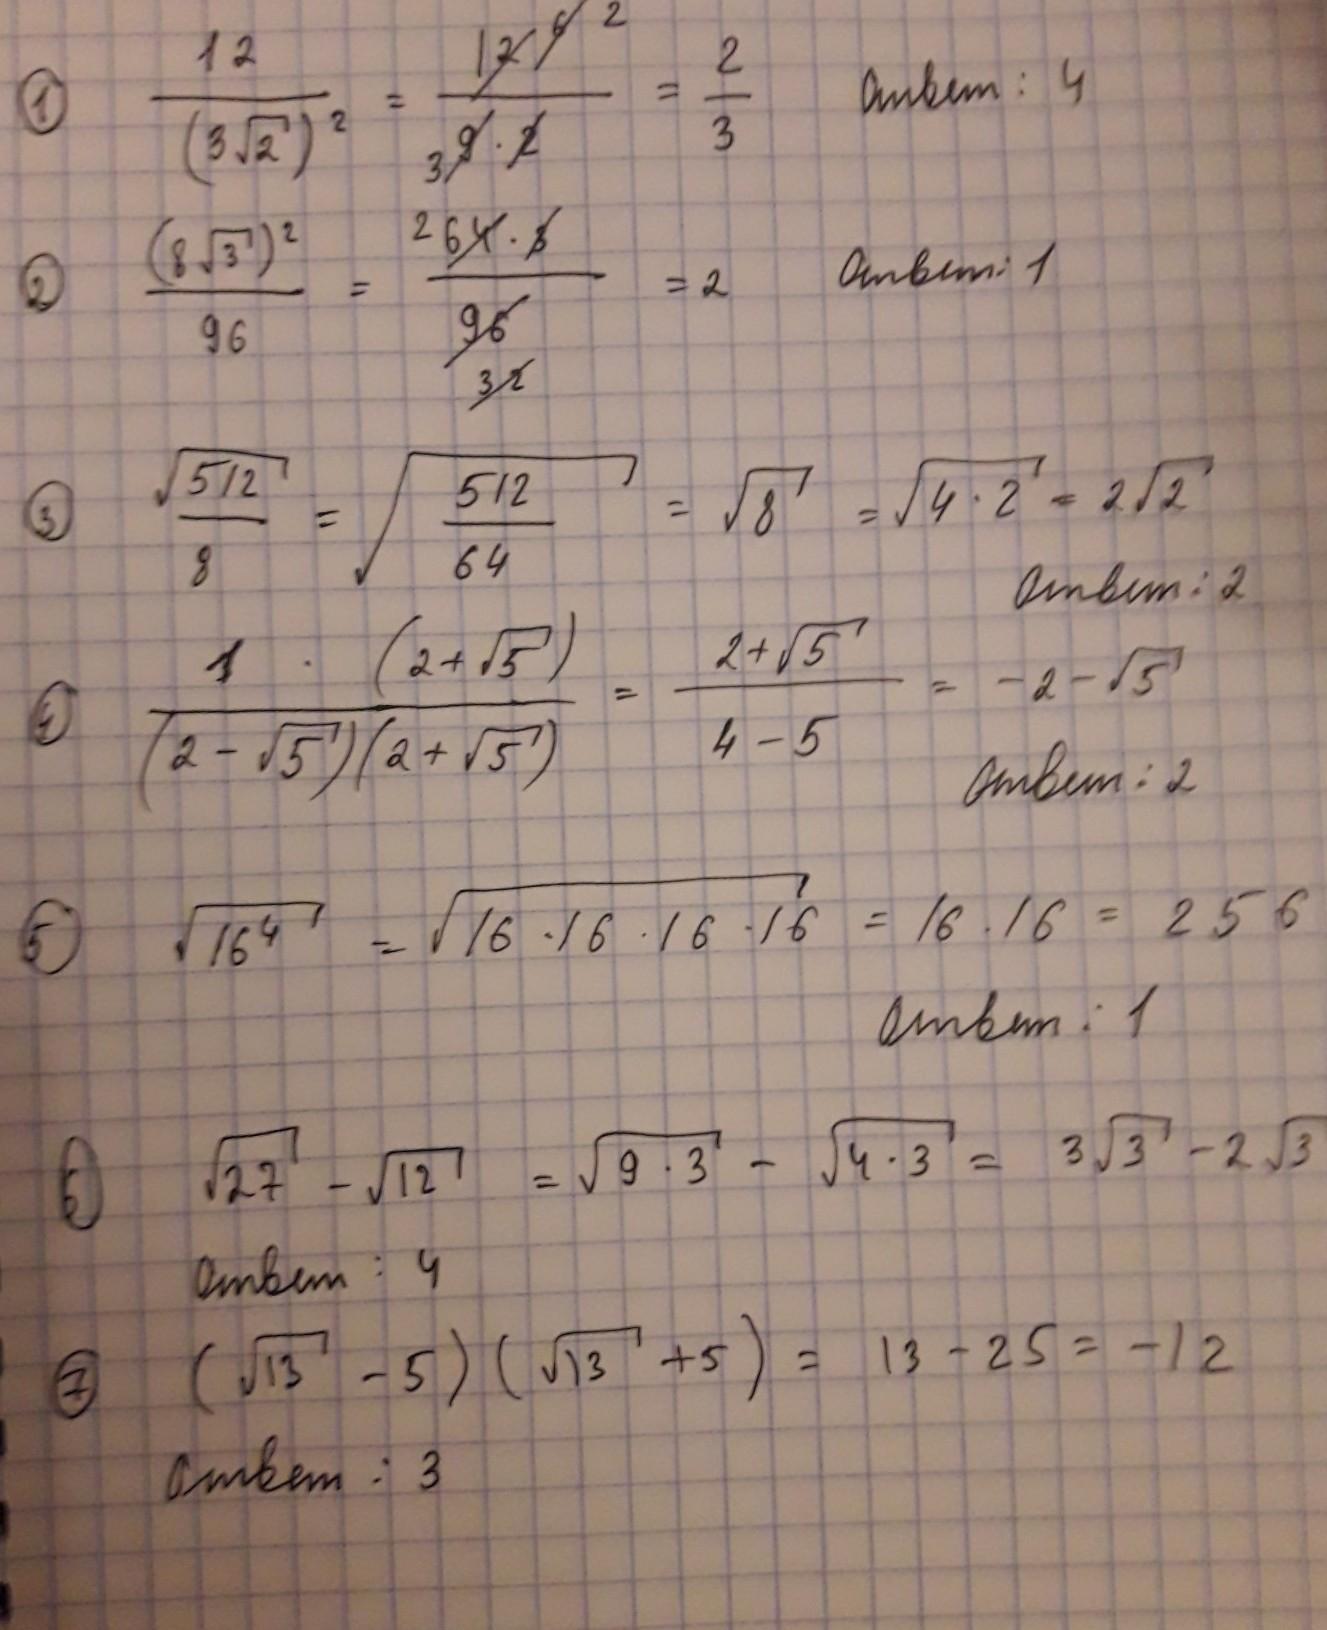 ① 12 / (3√2)² = 12 6 2 / 3 9 · 2 = 2/3 Ответ: 4
② (8√3)² / 96 = 2 64 · 3 / 96 32 = 2 Ответ: 1
③ √512 / 8 = √(512/64) = √8 = √(4 · 2) = 2√2
Ответ: 2
④ 1 · (2+√5) / (2-√5)(2+√5) = 2+√5 / 4-5 = -2-√5
Ответ: 2
⑤ √16⁴ = √(16 · 16 · 16 · 16) = 16 · 16 = 256
Ответ: 1
⑥ √27 - √12 = √(9 · 3) - √(4 · 3) = 3√3 - 2√3
Ответ: 4
⑦ (√13 - 5)(√13 + 5) = 13 - 25 = -12
Ответ: 3